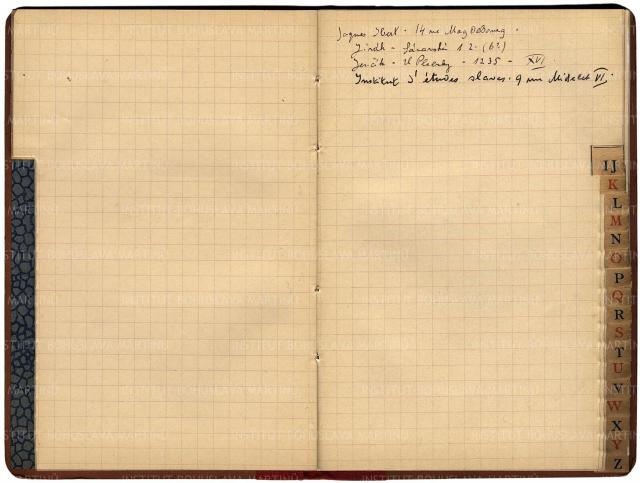 Jaques Ibert - 14 rue Mag
Jirák - 12 (b?)
Jenčík - 1235 - XVI
Institut d'études slaves. 9 rue Michelet VI.
IJ
K
L
M
N
O
P
Q
R
S
T
U
V
W
X
Y
Z
INSTITUT BOHUSLAVA MARTINŮ